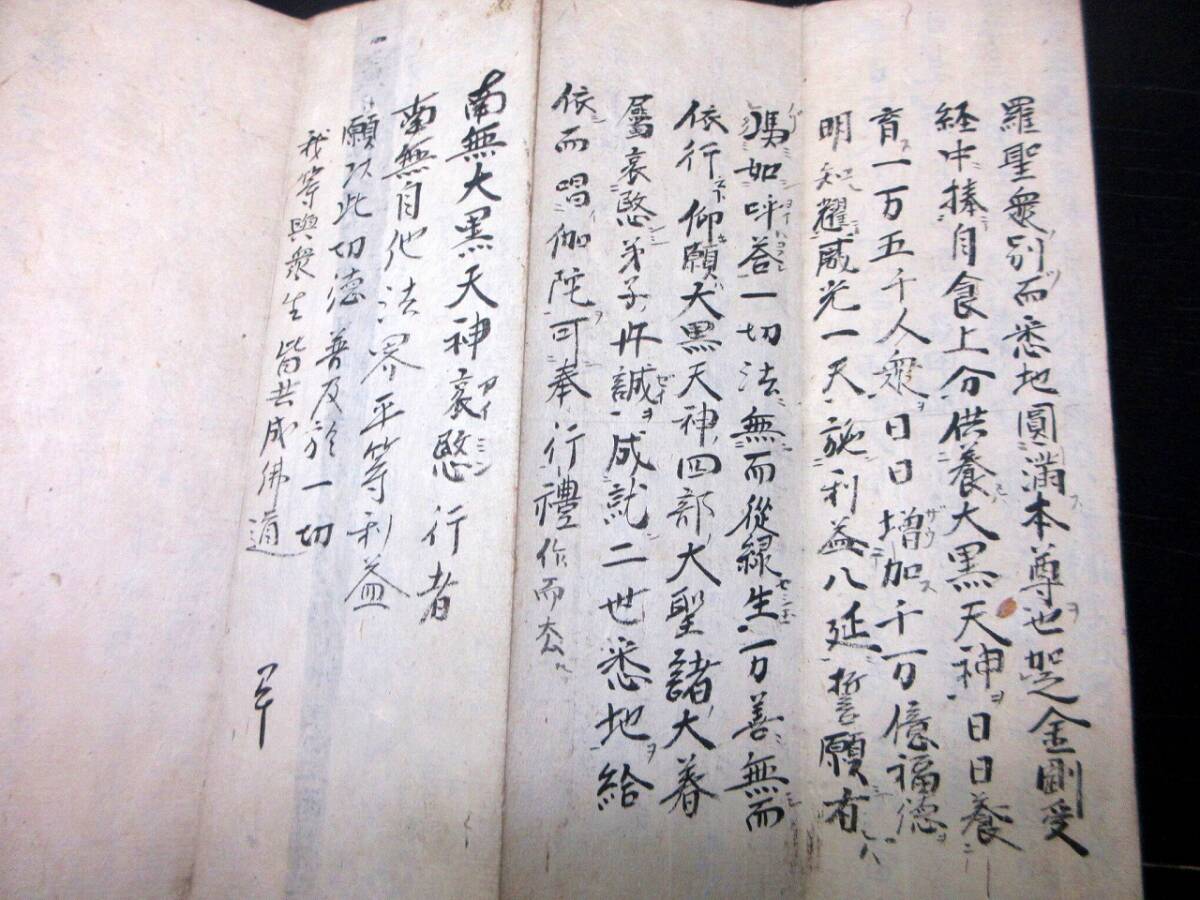 羅聖衆別而悉地圓満本尊也加之金剛受
経中捧自食上分供養大黒天神日日養
育一万五千人衆日日増加千万億福徳
明知耀威光一天施利益八延誓願有
馮如呼答一切法無而従縁生万善無而
依行仰願大黒天神四部大聖諸大眷
属哀愍弟子丹誠成就二世悉地給
依而唱伽陀可奉行禮作而去
南無大黒天神哀愍行者
南無自他法界平等利益
願以此切徳普及於一切
我等與衆生皆共成佛道